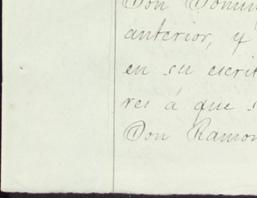 Don
anterior, y
en su escrit
res á que s
Don Ramon